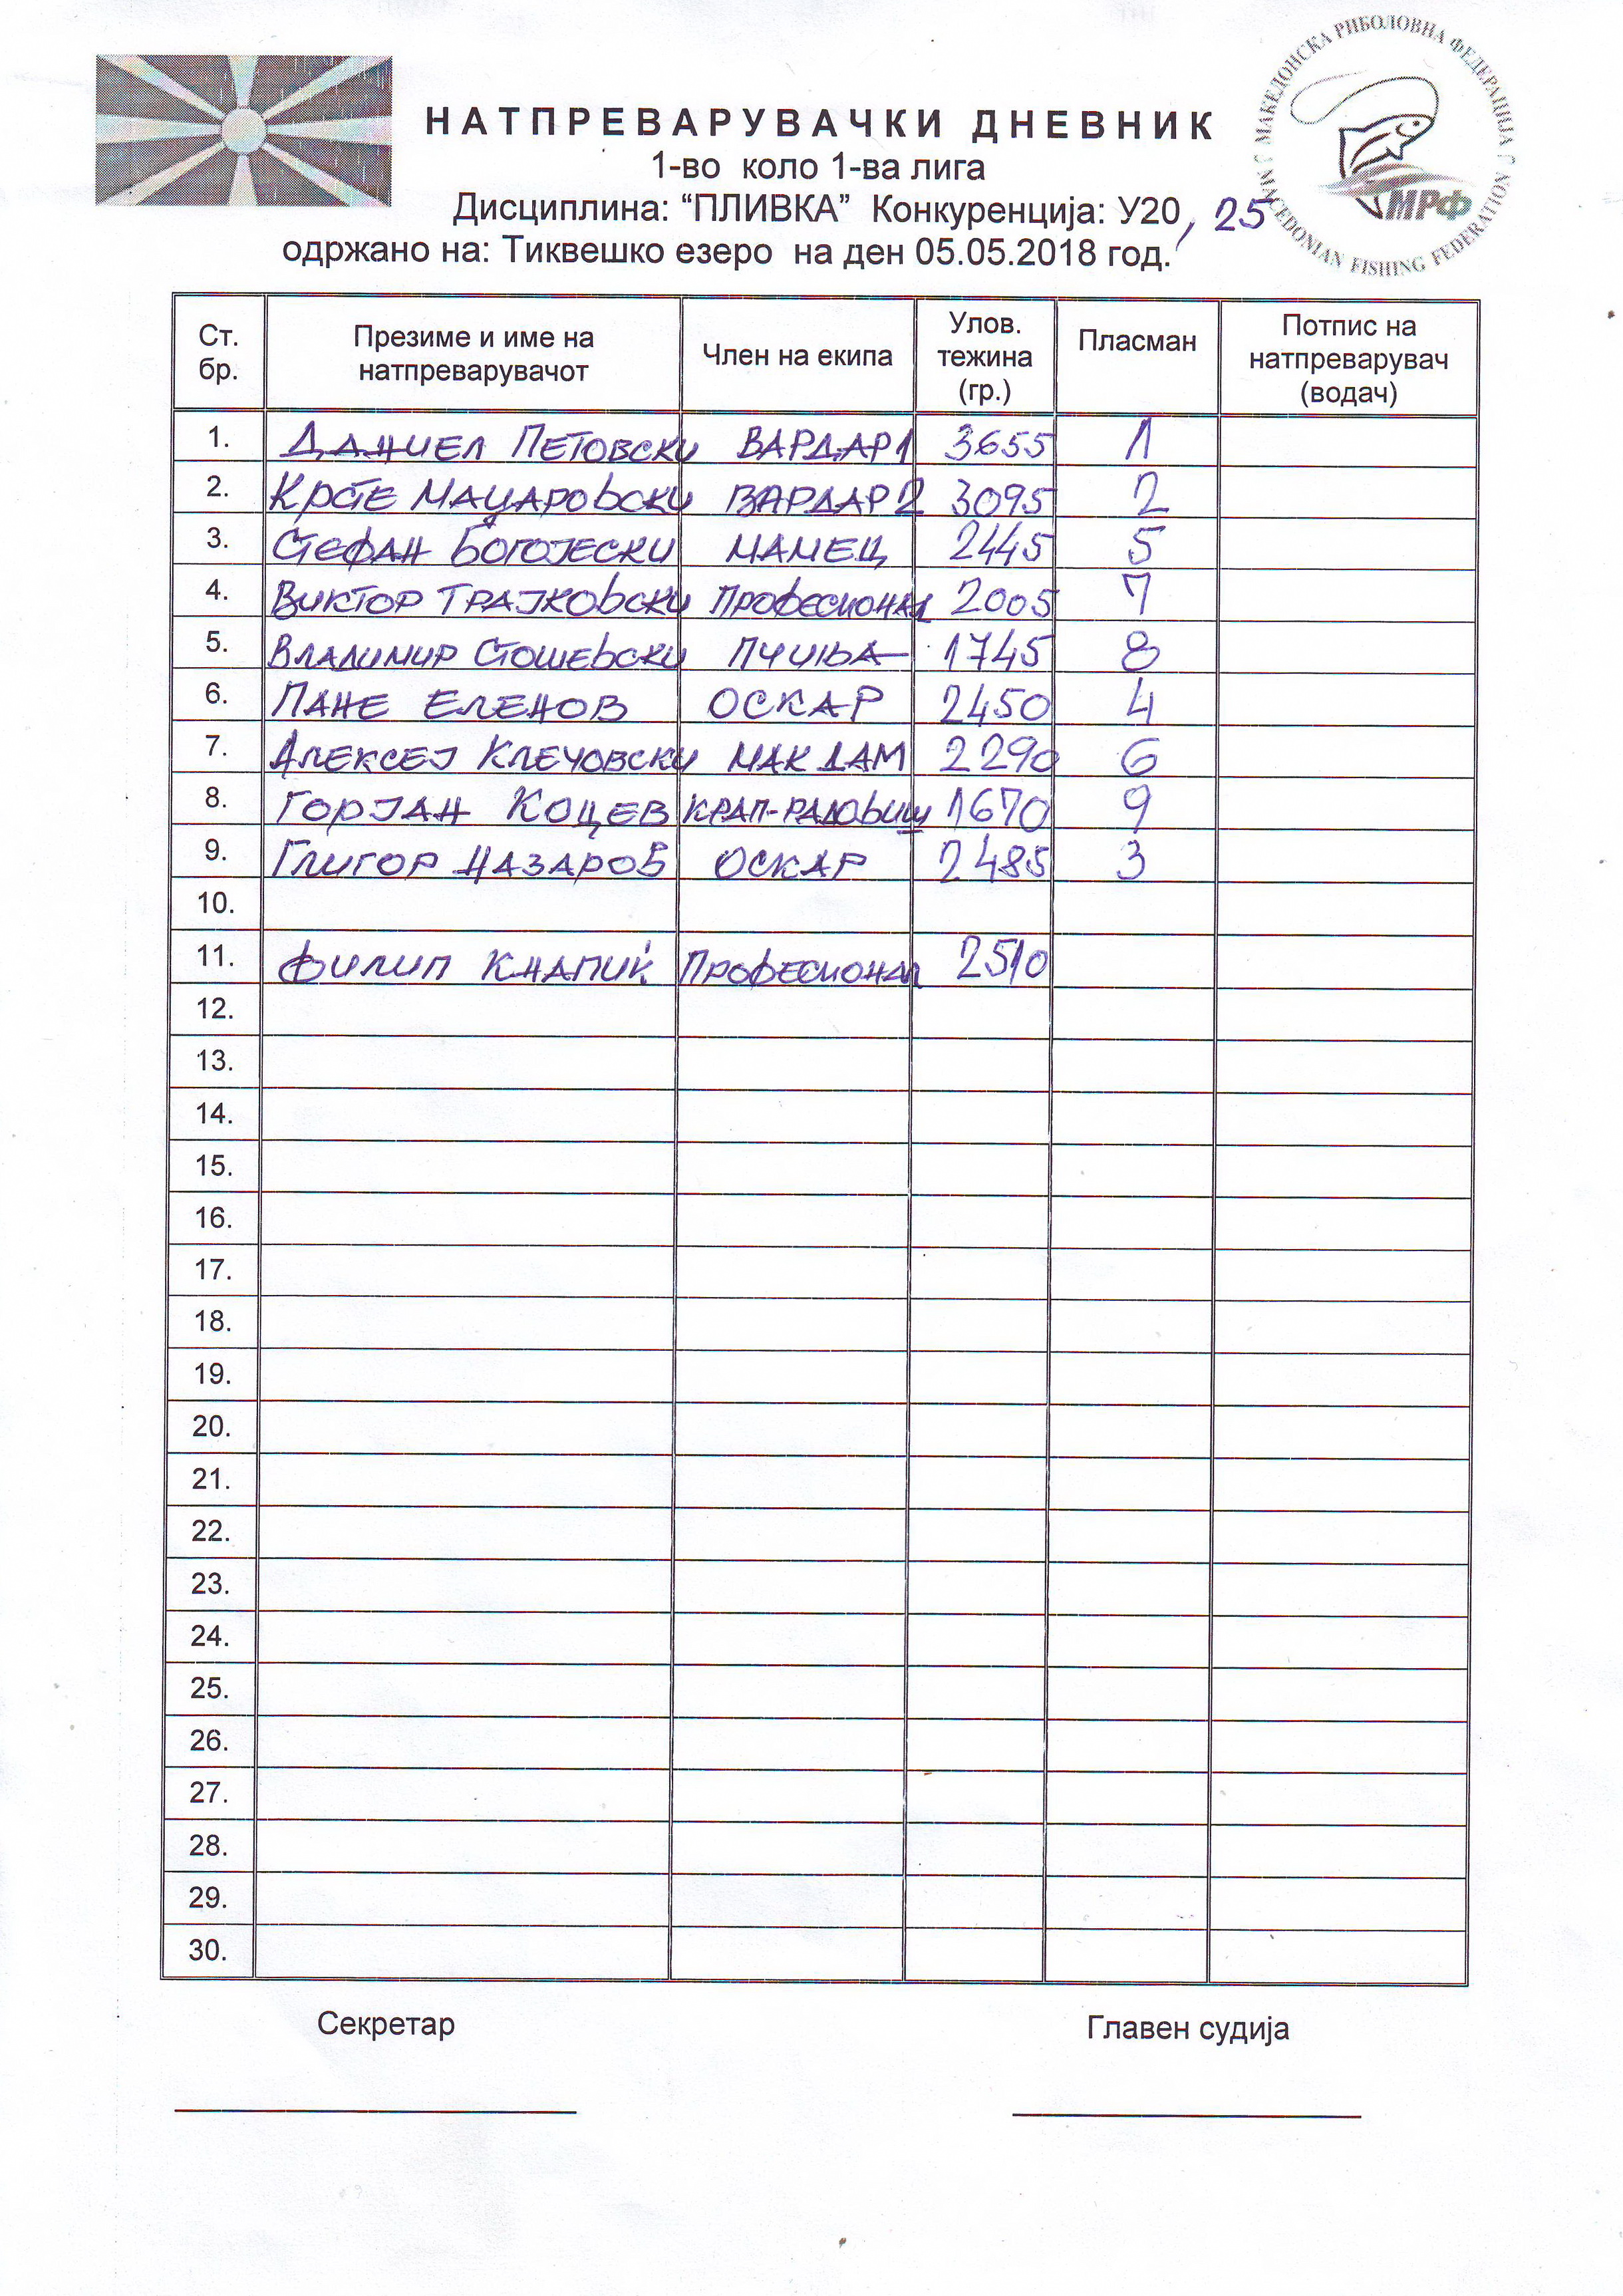 МАКЕДОНСКА РИБОЛОВНА ФЕДЕРАЦИЈА
MACEDONIAN FISHING FEDERATION
МРФ
НАТПРЕВАРУВАЧКИ ДНЕВНИК
1-во коло 1-ва лига
Дисциплина: “ПЛИВКА” Конкуренција: У20, 25
одржано на: Тиквешко езеро на ден 05.05.2018 год.
Ст. бр. Презиме и име на натпреварувачот Член на екипа Улов. тежина (гр.) Пласман Потпис на натпреварувач (водач)
1. ДАНИЕЛ ПЕТОВСКИ ВАРДАР 1 3655 1
2. КРСТЕ МАЏАРОВСКИ ВАРДАР 2 3095 2
3. СТЕФАН БОГОЈЕСКИ МАМЕЦ 2445 5
4. ВИКТОР ТРАЈКОВСКИ ПРОФЕСИОНАЛ 2005 7
5. ВЛАДИМИР СТОШЕВСКИ ПЧИЊА 1745 8
6. ПАНЕ ЕЛЕНОВ ОСКАР 2450 4
7. АЛЕКСЕЈ КЛЕЧОВСКИ МАК ДАМ 2290 6
8. ГОРЈАН КОЦЕВ КРАП-РАДОВИШ 1670 9
9. ГЛИГОР НАЗАРОВ ОСКАР 2485 3
10.
11. ФИЛИП КНАПИЌ ПРОФЕСИОНАЛ 2510
12.
13.
14.
15.
16.
17.
18.
19.
20.
21.
22.
23.
24.
25.
26.
27.
28.
29.
30.
Секретар Главен судија